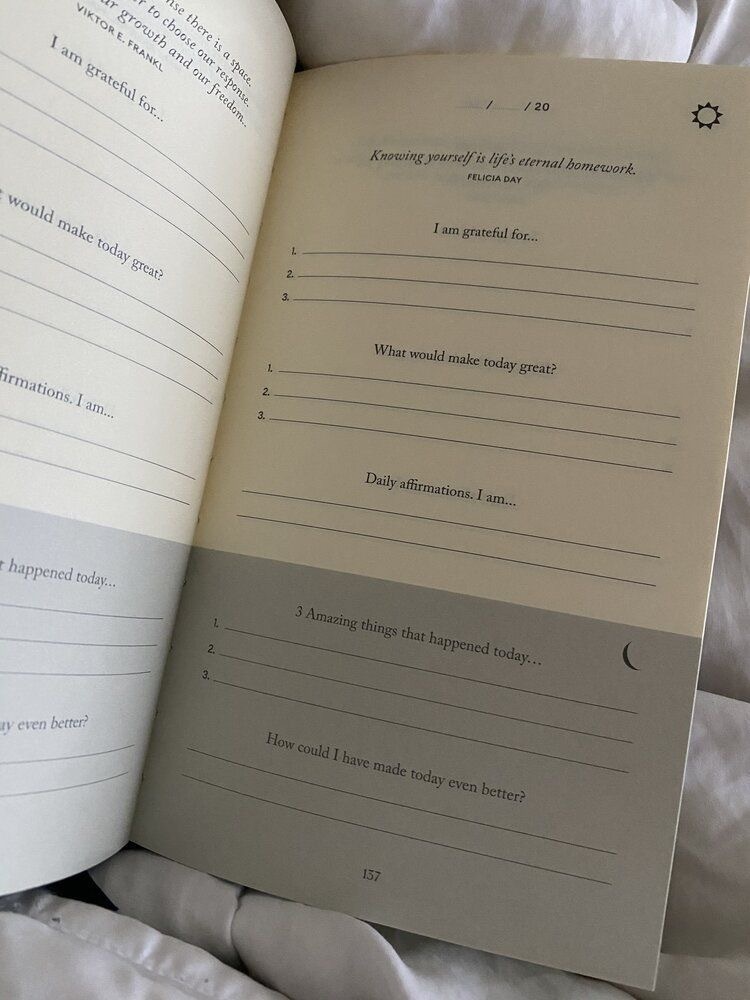 nse there is a space.
er to choose our response.
ur growth and our freedom..
VIKTOR E. FRANKL
I am grateful for...
would make today great?
firmations. I am...
t happened today...
ay even better?
/ / 20
Knowing yourself is life's eternal homework.
FELICIA DAY
I am grateful for...
1.
2.
3.
What would make today great?
1.
2.
3.
Daily affirmations. I am...
3 Amazing things that happened today...
1.
2.
3.
How could I have made today even better?
137